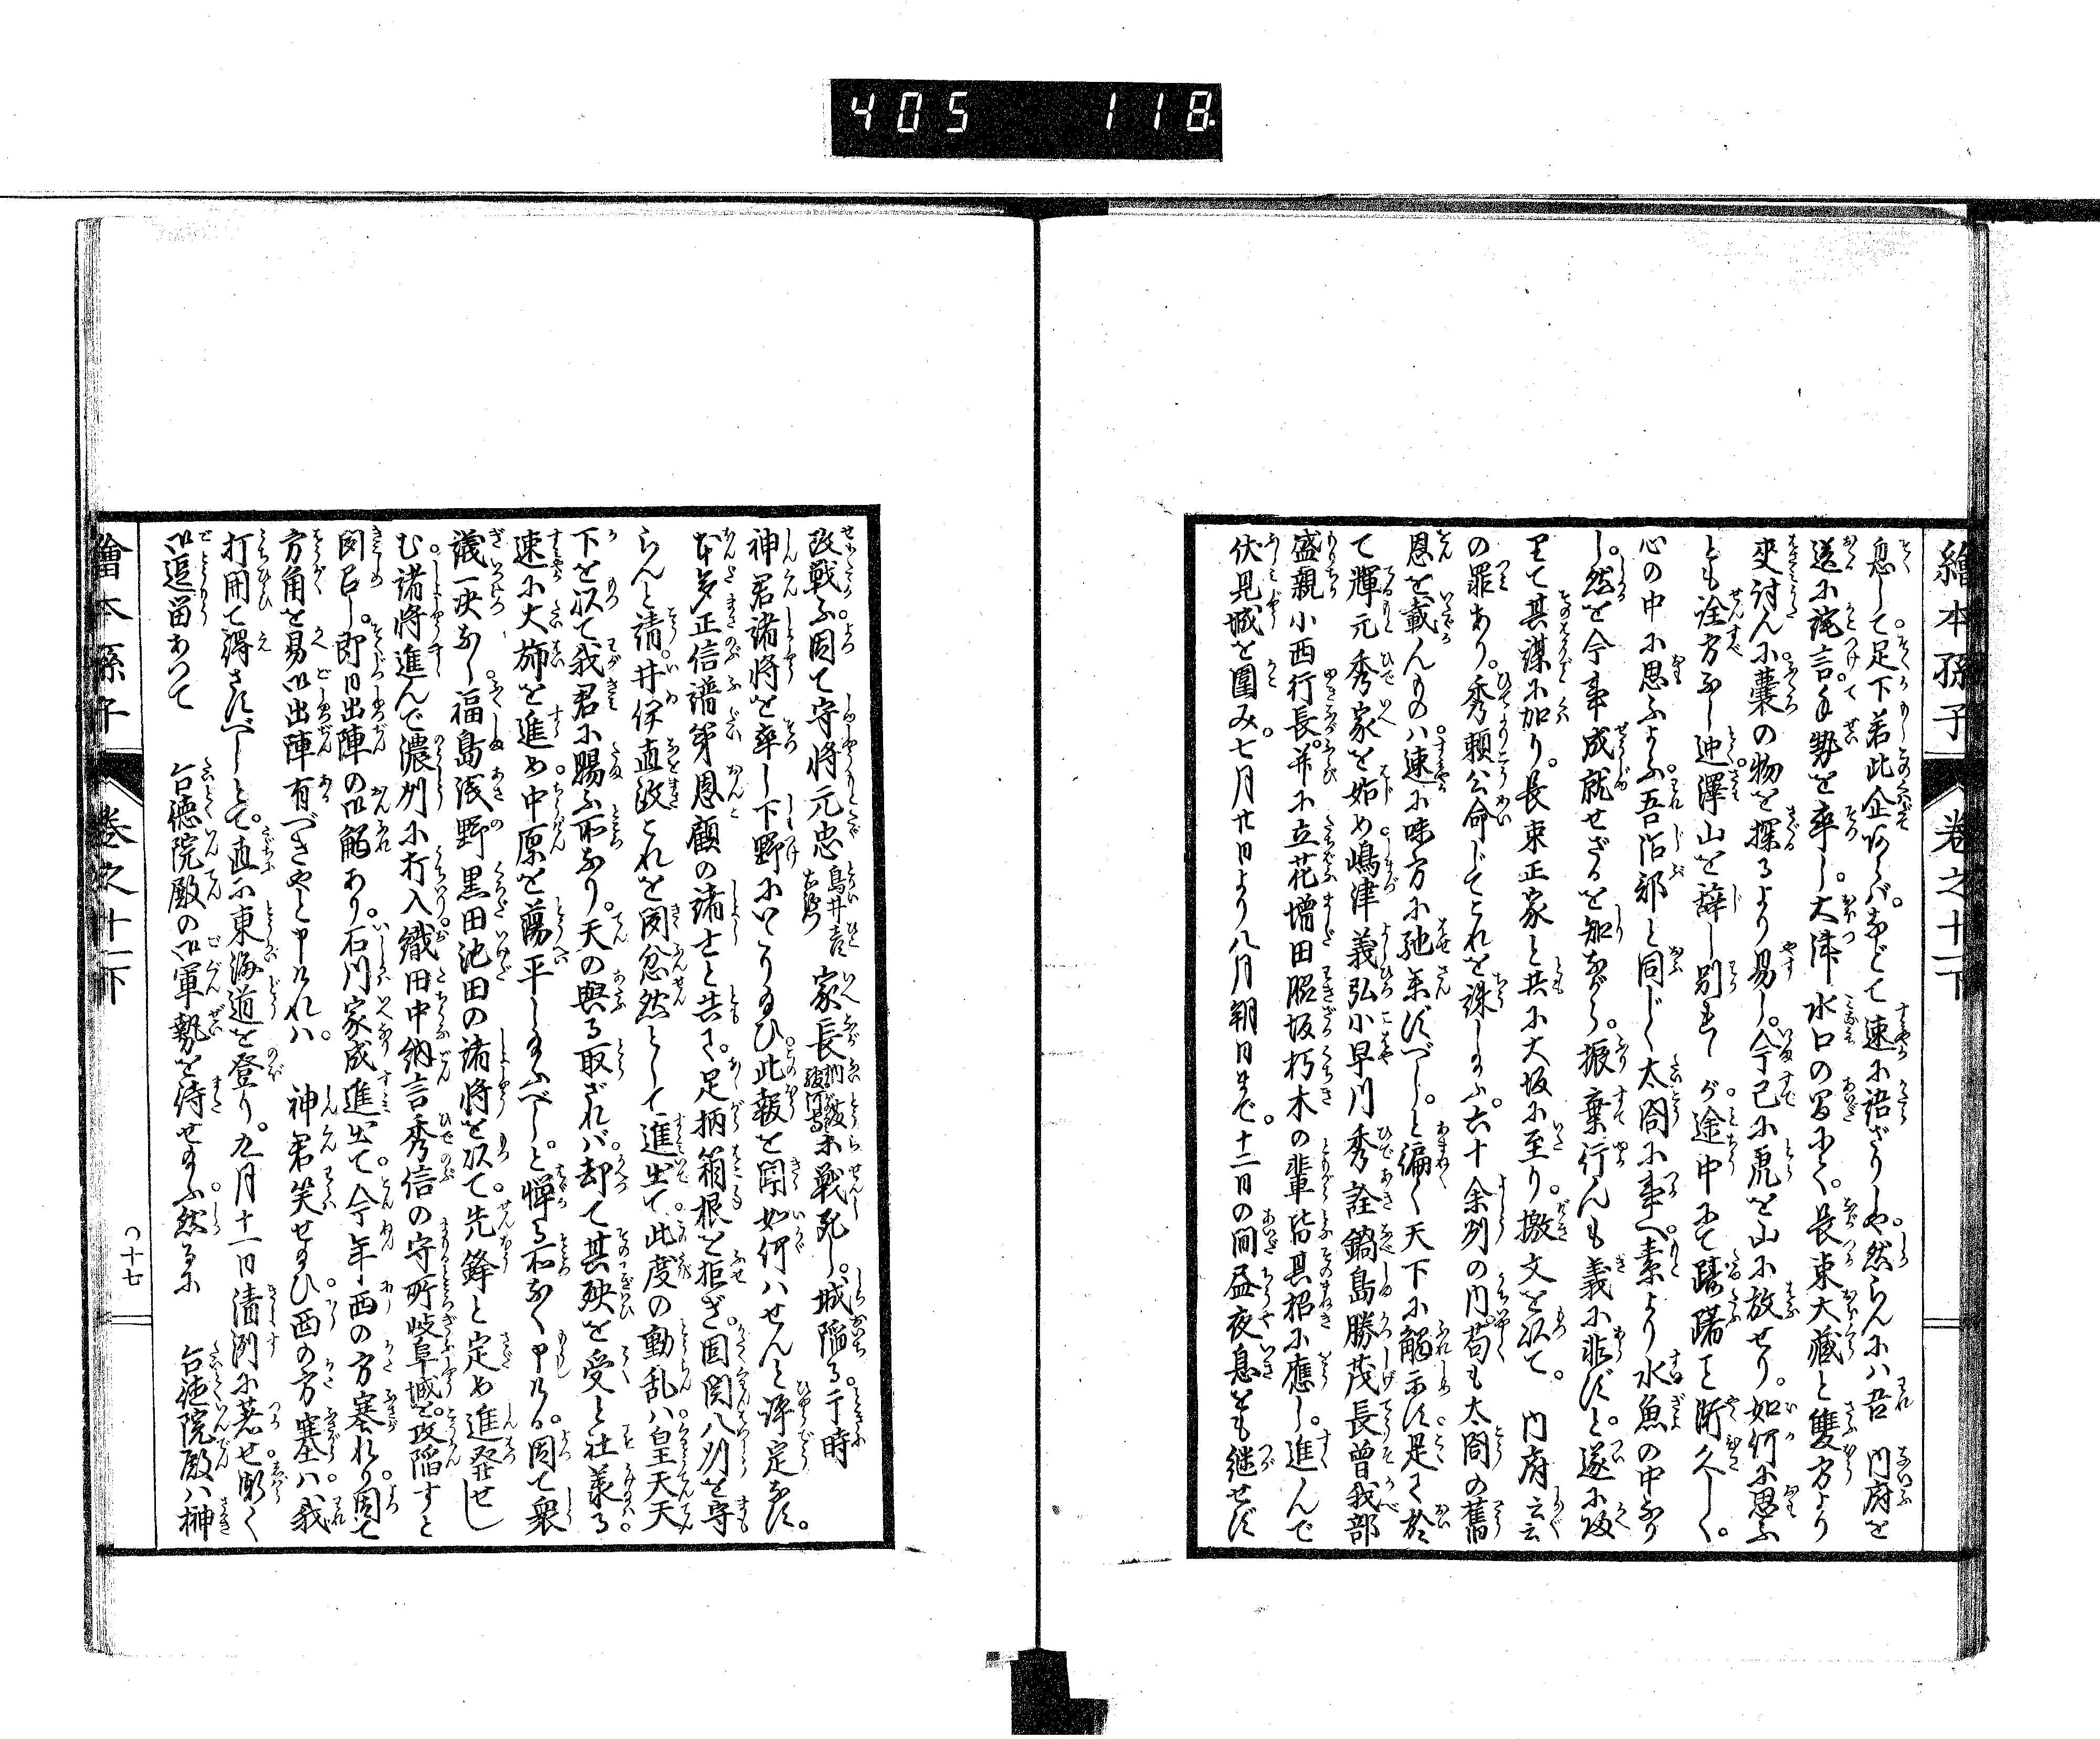 405 118
繪本孫子 卷之十一下
息して足下若此企あらバ。などて速に語ざりしや。然らんにハ吾 内府を
送に詫言て勢を率し。大津水口の間にて。長束大藏と雙方より
夾討んに。嚢の物を探るより易し。今已に虎を山に放せり。如何に思ふ
とも詮方なし迚。澤山を辞し別れしが。途中にて躊躇こと斯久しく。
心の中に思ふよふ。吾治部と同じく太閤に事へ。素より水魚の中なり
し。然を今事成就せざるを知ながら。振棄行んも義に非ずと。遂に返
りて其謀に加り。長束正家と共に大坂に至り。檄文を以て。 内府云云
の罪あり。秀頼公命じてこれを誅し給ふ。六十余州の内。苟も太閤の舊
恩を載んものハ。速に味方に馳参ずべし。と徧く天下に觸示す。是に於
て輝元秀家を始め。嶋津義弘小早川秀詮鍋島勝茂長曾我部
盛親小西行長。并に立花増田脇坂朽木の輩。皆其招に應し。進んで
伏見城を圍み。七月廿日より八月朔日まで。十二日の間昼夜息をも継せず
攻戦ふ。因て守将元忠 鳥井彦右衛門 家長 内藤 駿河守 等戦死し。城陥る。于時
神君諸将を率し下野にいたり給ひ。此報を聞。如何ハせんと評定なす。
本多正信譜第恩顧の諸士と共に。足柄箱根を拒ぎ。固く関八州を守
らんと請。井伊直政これを聞。忿然として進出て。此度の動乱ハ。皇天天
下を以て我君に賜ふ所なり。天の與る取ざれバ。却て其殃を受と社義る。
速に大旆を進め。中原を蕩平し給ふべし。と憚る所なく申ける。因て衆
議一決なし。福島浅野黒田池田の諸将を以て。先鋒と定め進発せし
む。諸将進んで濃州に打入。織田中納言秀信の守所岐阜城を攻陥すと
聞召し。即日出陣の御觸あり。石川家成進出て。今年ハ西の方塞れり。因て
方角を易御出陣有べきやと申けれハ。 神君笑せ給ひ。西の方塞ハ。我
打開て得さすべしとて。直に東海道を登り。九月十一日清洲に著せ。暫く
御逗留あつて 台徳院殿の御軍勢を待せ給ふ。然るに 台徳院殿ハ榊
繪本孫子 卷之十一下 〇十七